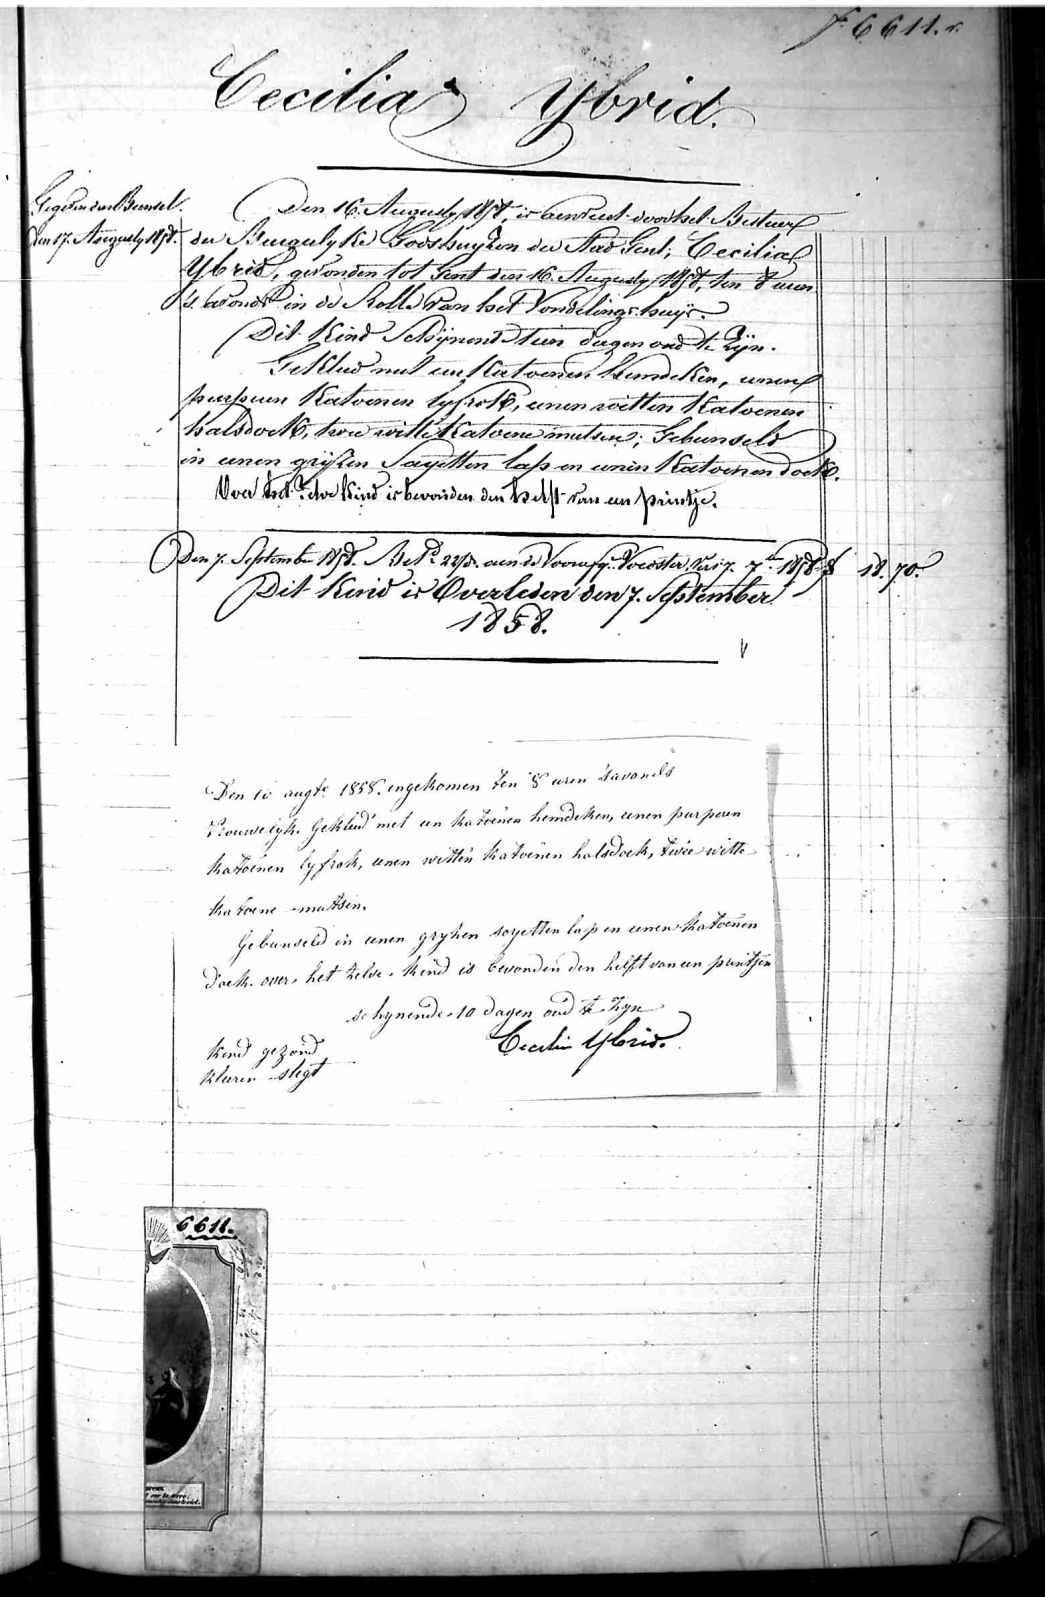 f. 6611. v.
Cecilia Ybrid.
Gegeven aan Beunsel.
den 17. Augusty 1858.
Den 16. Augusty 1858, is aenveert door het Bestuer
der Burgerlyke Godshuyzen der Stad Gent, Cecilia
Ybrid, gevonden tot Gent den 16. Augusty 1858, ten 8 uren
's avonds in de Rolle van het Vondelingshuys.
Dit Kind Schynend tien dagen oud te zyn.
Gekleed met een Katoenen Hemdeken, eenen
purpuren Katoenen lyfrok, eenen witten Katoenen
halsdoek, twee witte Katoene mutsen; Gebunseld
in eenen gryzen Sayetten lap en eenen Katoenen doek.
Over het zelve Kind is bevonden den helft van een printje.
Den 7. September 1858. Bet. aen de Voedster 7. 7ber 1858 18. 70.
Dit Kind is Overleden den 7. September
1858.
Den 16 augte. 1858. engekomen ten 8 uren 'savonds
Vrouwelyk. Gekleed met een katoenen hemdeken, eenen purperen
katoenen lyfrok, eenen witten katoenen halsdoek, twee witte
katoene mutsen.
Gebunseld in eenen gryzen sayetten lap en eenen katoenen
doek. over het zelve kind is bevonden den helft van een printjen
schynende 10 dagen oud te zyn
Cecilia Ybrid.
kind gezond
kleeren slegt
6611.